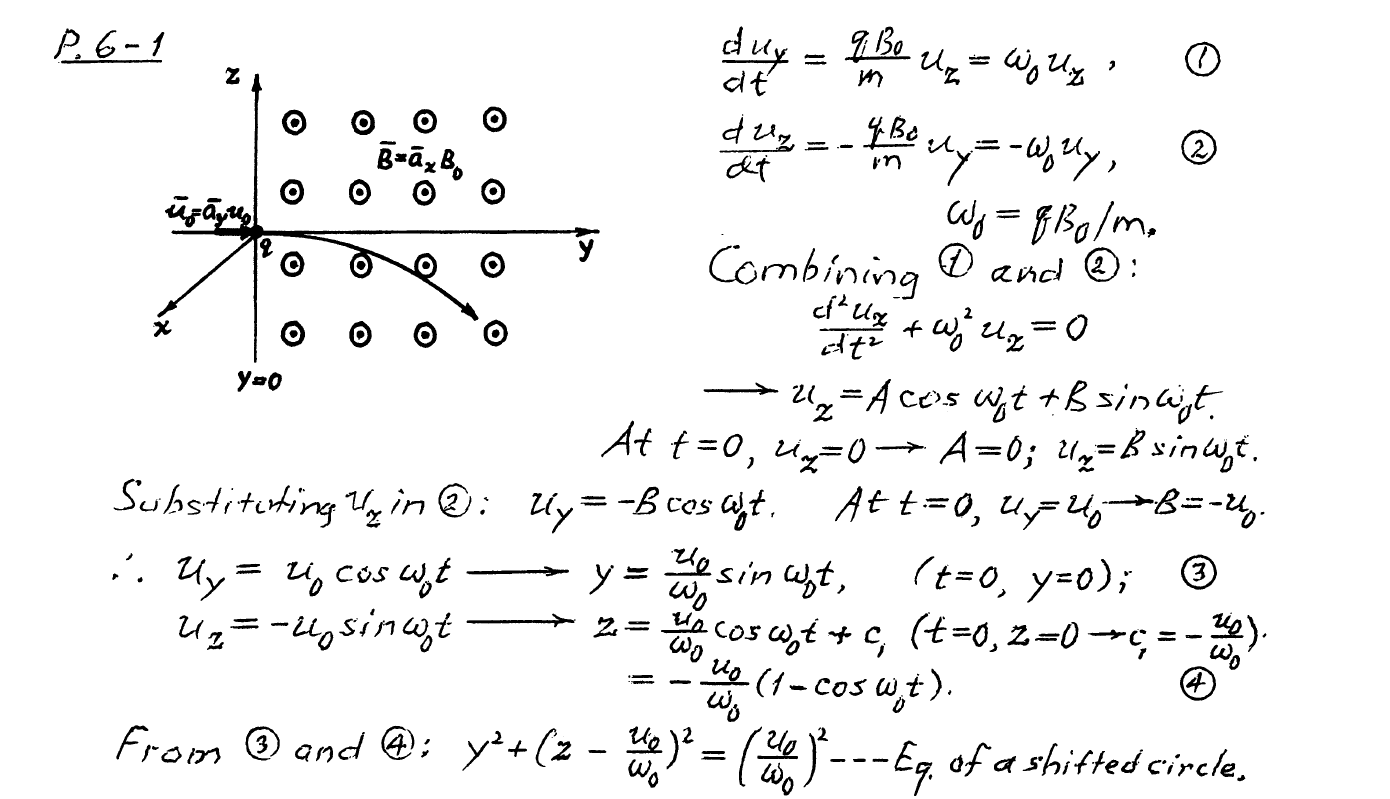 P. 6-1
z
B̄=āₓB₀
ū₀=ā_y u₀
q
y
x
y=0
du_y/dt = qB₀/m u_z = ω₀u_z, ①
du_z/dt = -qB₀/m u_y = -ω₀u_y, ②
ω₀ = qB₀/m.
Combining ① and ②:
d²u_z/dt² + ω₀²u_z = 0
→ u_z = A cos ω₀t + B sin ω₀t.
At t=0, u_z=0 → A=0; u_z=B sin ω₀t.
Substituting u_z in ②: u_y = -B cos ω₀t. At t=0, u_y=u₀ → B=-u₀.
∴ u_y = u₀ cos ω₀t → y = u₀/ω₀ sin ω₀t, (t=0, y=0); ③
u_z = -u₀ sin ω₀t → z = u₀/ω₀ cos ω₀t + c₁ (t=0, z=0 → c₁ = -u₀/ω₀).
= -u₀/ω₀ (1-cos ω₀t). ④
From ③ and ④: y²+(z - u₀/ω₀)² = (u₀/ω₀)² --- Eq. of a shifted circle.